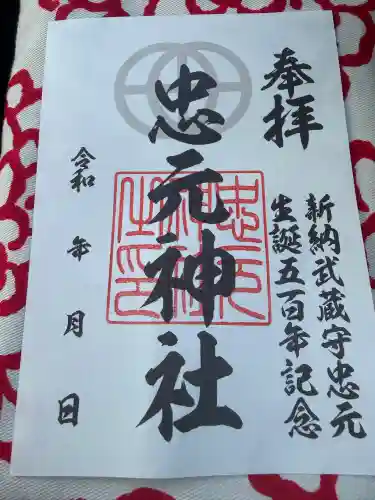 奉拝
新納武蔵守忠元
生誕五百年記念
忠元神社
令和 年 月 日
忠元
神社
之印